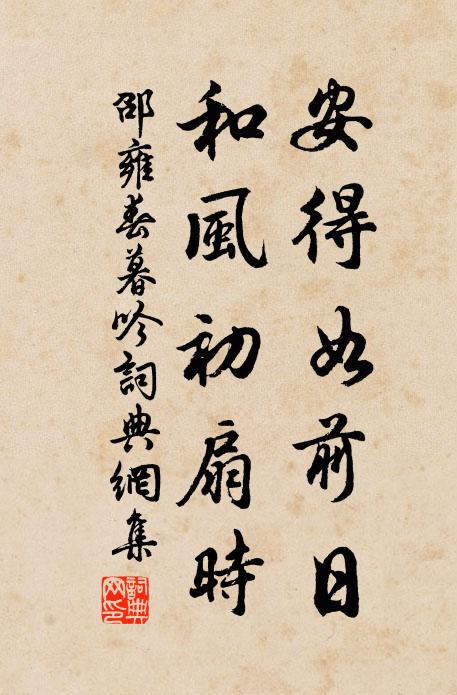 安得如前日
和風初扇時
邵雍春暮吟詞典網集
詞典網印